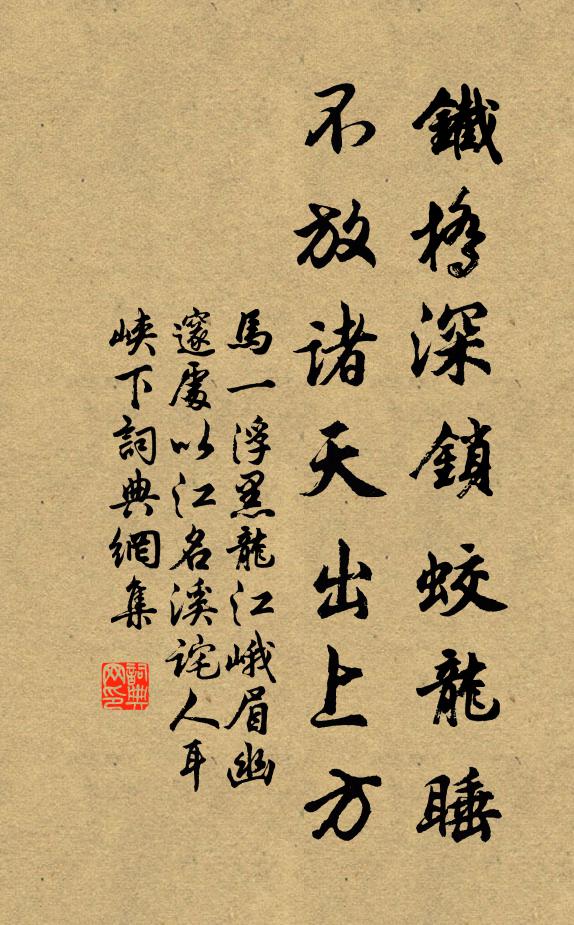 鐵橋深鎖蛟龍睡
不放諸天出上方
馬一浮黑龍江峨眉幽
邃處以江名溪詫人耳
峽下詞典網集
詞典
网印